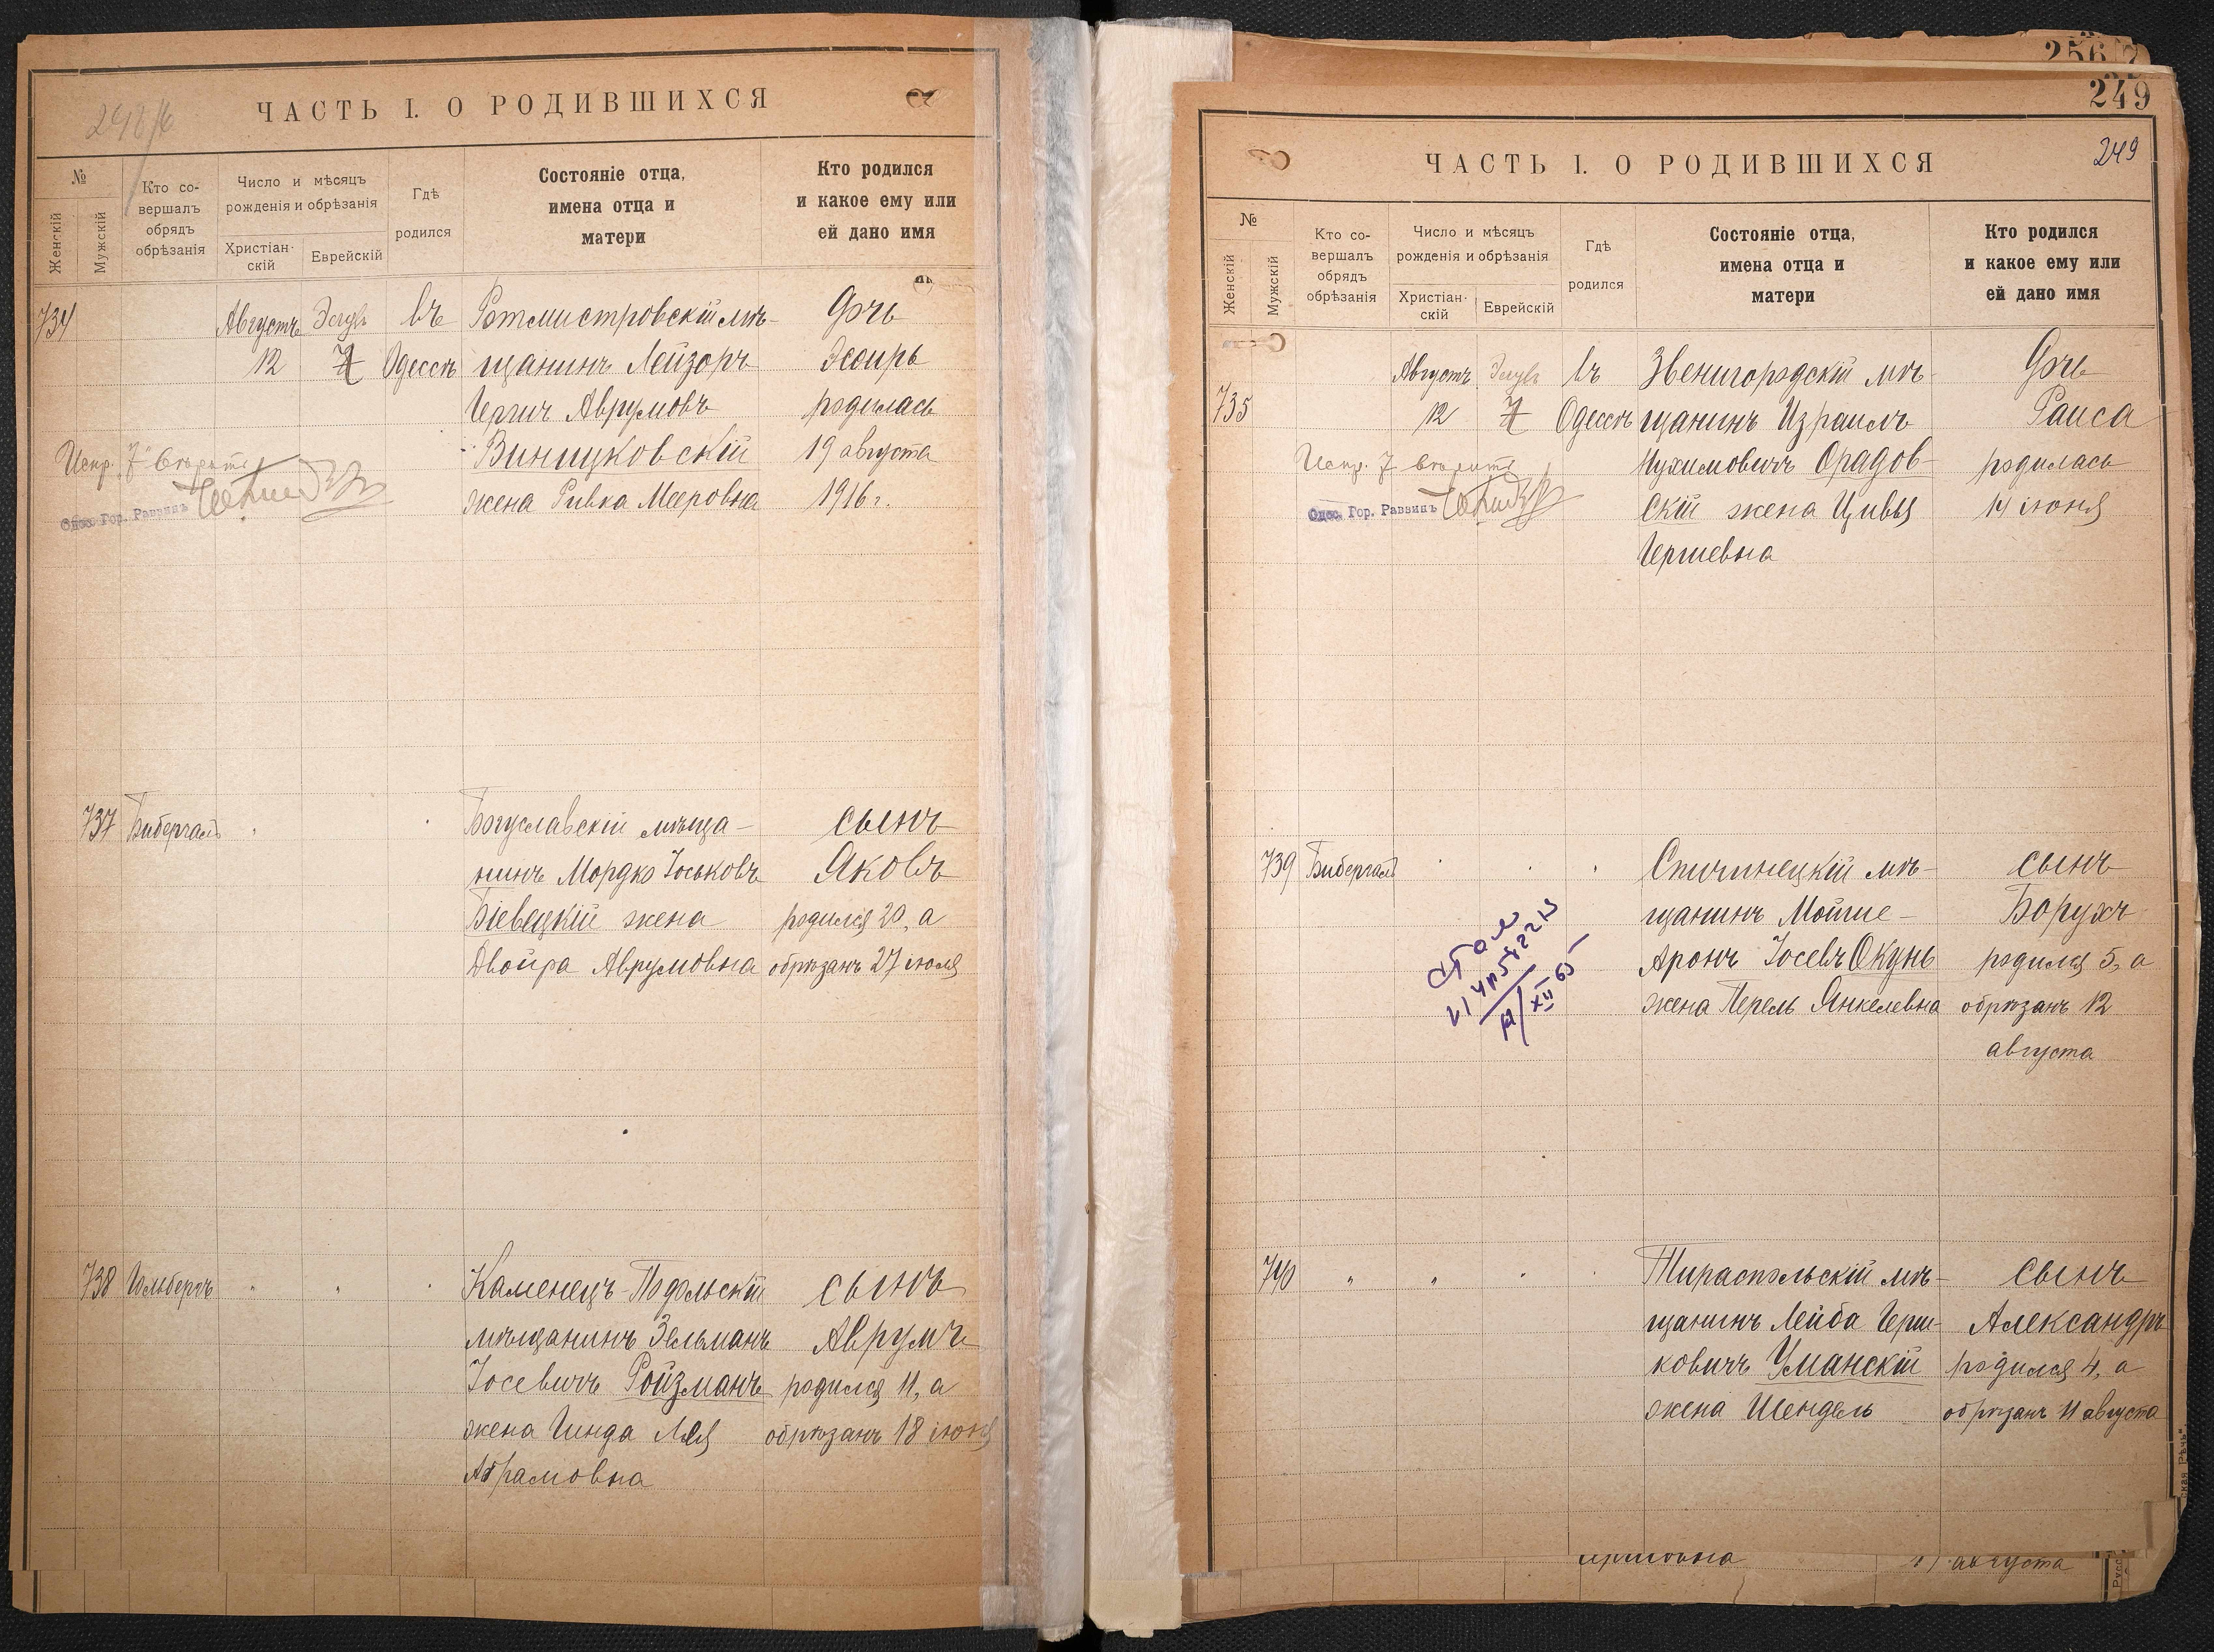 ЧАСТЬ I. О РОДИВШИХСЯ
№
Женскій
Мужскій
Кто со-
вершалъ
обрядъ
обрѣзанія
Число и мѣсяцъ
рожденія и обрѣзанія
Христіан-
скій
Еврейскій
Гдѣ
родился
Состояніе отца,
имена отца и
матери
Кто родился
и какое ему или
ей дано имя
734
Августъ
12
7
въ
Одессѣ
Ротмистровскій мѣ-
щанинъ Лейзоръ
Гершъ Аврумовъ
жена Ривка Мееровна
Дочь
Эсѳирь
родилась
19 августа
1916 г.
Испр. 7 вѣрить
Одес. Гор. Раввинъ
737
Бибергалъ
Богуславскій мѣща-
нинъ Мордко Іоськовъ
Біевецкій жена
Двойра Аврумовна
сынъ
Яковъ
родился 20, а
обрѣзанъ 27 іюля
738
Гольбергъ
"
"
Каменецъ-Подольскій
мѣщанинъ Зельманъ
Іосевичъ Ройзманъ
жена Гинда Лея
Абрамовна
сынъ
Аврумъ
родился 11, а
обрѣзанъ 18 іюня
256
249
249
ЧАСТЬ I. О РОДИВШИХСЯ
№
Женскій
Мужскій
Кто со-
вершалъ
обрядъ
обрѣзанія
Число и мѣсяцъ
рожденія и обрѣзанія
Христіан-
скій
Еврейскій
Гдѣ
родился
Состояніе отца,
имена отца и
матери
Кто родился
и какое ему или
ей дано имя
735
Августъ
12
7
въ
Одессѣ
Звенигородскій мѣ-
щанинъ Израиль
Нухимовичъ Орадов-
скій жена Цивья
Гершевна
Дочь
Раиса
родилась
14 іюня
Испр. 7 вѣрить
Одес. Гор. Раввинъ
739
Бибергалъ
Спичинецкій мѣ-
щанинъ Мойше-
Аронъ Іосевъ Окунь
жена Перель Янкелевна
сынъ
Борухъ
родился 5, а
обрѣзанъ 12
августа
740
"
"
Тираспольскій мѣ-
щанинъ Лейба Герш-
ковичъ Уманскій
жена Шендель
сынъ
Александръ
родился 4, а
обрѣзанъ 11 августа
августа